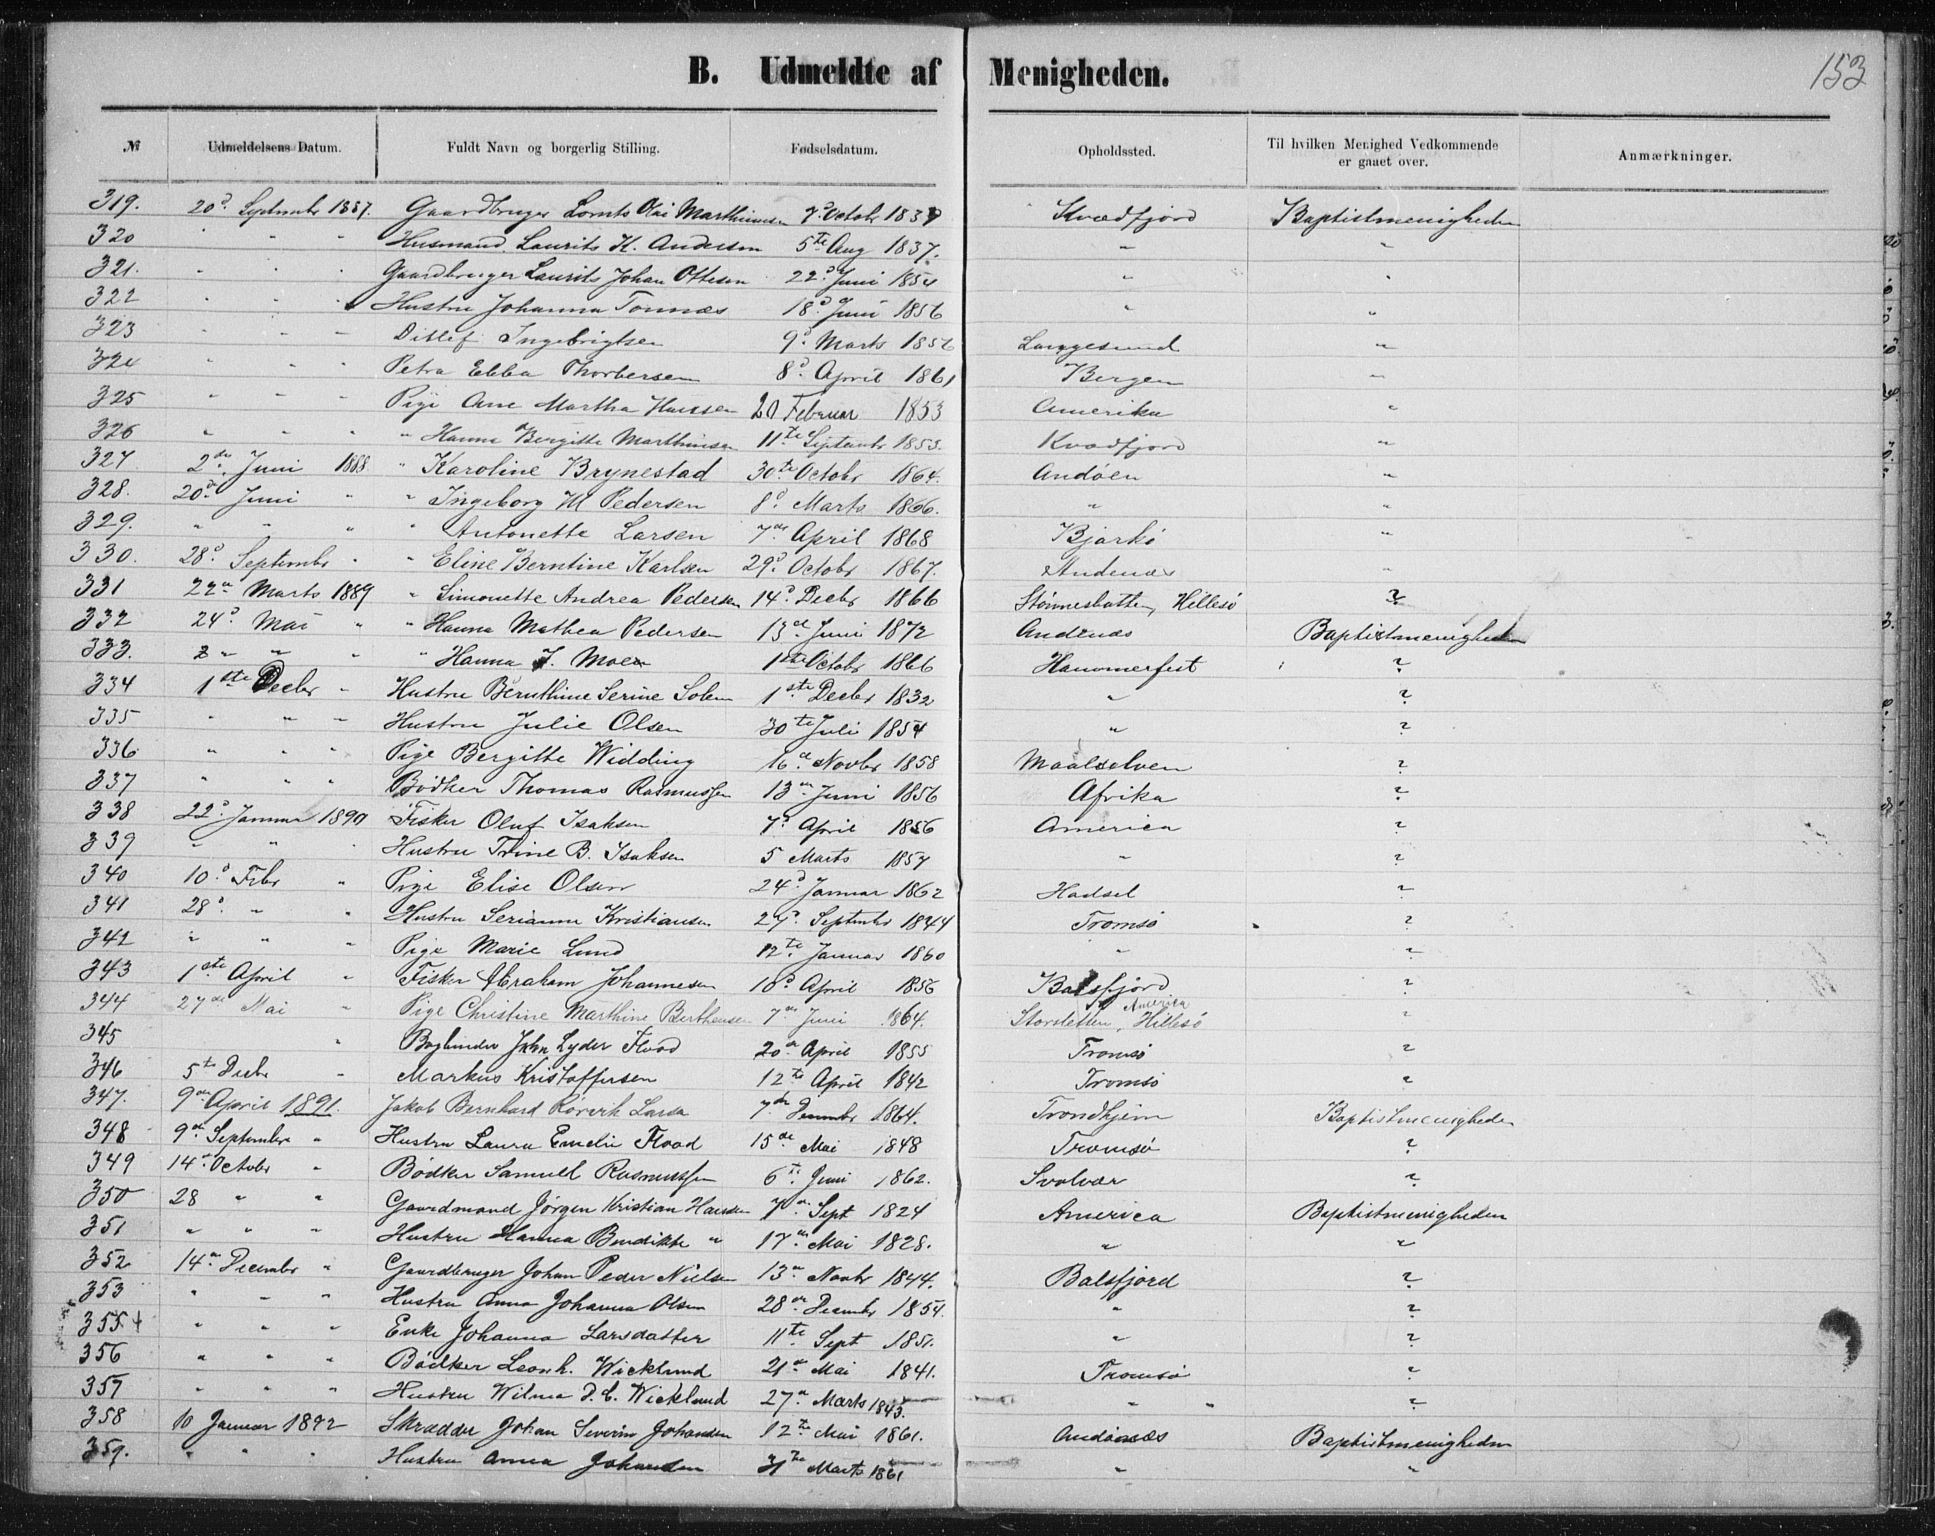 153
B. Udmeldte af Menigheden.
№ Udmeldelsens Datum. Fuldt Navn og borgerlig Stilling. Fødselsdatum. Opholdssted. Til hvilken Menighed Vedkommende er gaaet over. Anmærkninger.
319. 20d. Septembr 1887. Gaardbruger Lornts Olai Marthinsen 7d Octobr 1839 Kvædfjord Baptistmenigheden
320 " " " Husmand. Laurits H. Andersen 5te Aug 1837. " "
321. " " " Gaardbruger Laurits Johan Ottesen 22d. Juni 1854 " "
322 " " " Hustru Johanna Tonnæs 18d. Juni 1856 " "
323 " " " Ditlef Ingebrigtsen 9d. Marts 1856 Langesund "
324 " " " Petra Ebba Thorbersen 8d. April 1861 Bergen "
325 " " " Pige Ane Martha Hansen 20 Februar 1853 Amerika "
326 " " " " Hanna Bergitte Marthinsen 11te Septembr 1853. Kvædfjord "
327 2den Juni 1888 " Karoline Brynestad 30te Octobr 1864. Andøen "
328. 20de Juni " " Ingeborg M Pedersen 8d. Marts 1866. " "
329. " " " " Antonette Larsen 7de April 1868 Bjarkø "
330. 28d. Septembr " " Eline Berntine Karlsen 29d. Octobr 1867. Andenæs "
331 22de Marts 1889 " Simonette Andrea Pedersen 14d. Decbr 1866 Stønnesbotten, Hillesø ?
332 24d. Mai " " Hanna Mathea Pedersen 13de Juni 1872 Andenæs Baptistmenigheden
333. " " " " Hanna J. Moen 1ste Octobr 1866 Hammerfest ?
334 1ste Decbr " Hustru Bernthine Serine Solem 1ste Decbr 1832 " ?
335 " " " Hustru Julie Olsen 30te Juli 1854 " ?
336 " " " Pige Bergitte Widding 16de Novbr 1858 Maalselven ?
337 " " " Bödker Thomas Rasmussen 13de Juni 1856 Afrika ?
338 22d. Januar 1890 Fisker Oluf Isaksen 7d April 1856 America ?
339 " " " Hustru Trine B. Isaksen 5 Marts 1857 " ?
340 10d Febr " Pige Elise Olsen 24d. Januar 1862 Hadsel ?
341 28d. " " Hustru Serianna Kristiansen 27d. Septembr 1844 Tromsø ?
342 " " " Pige Marie Lund 12te Januar 1860 " ?
343 1ste April " Fisker Abraham Johannesen 10d April 1856 Balsfjord ?
344 27de Mai " Pige Christine Marthine Berthensen 7de Juni 1864. Storstetten, Hillesø America ?
345 " Bogbinder John Lyder Flood 20de April 1855 Tromsø ?
346 5te Decbr " Markus Kristoffersen 12te April 1842 Tromsø ?
347. 9de April 1891. Jakob Bernhard Rörvik Larsen 7de Decembr 1864. Trondhjem Baptistmenigheden
348 9de Septembr " Hustru Laura Emelie Flood 15de Mai 1848 Tromsø ?
349 14de Octobr " Bödker Samuel Rasmussen 6te Juni 1862. Svolvær ?
350 28 " " Gaardmand Jörgen Kristian Hansen 7de Sept 1824 America Baptistmenigheden
351 " " " Hustru Hanna Bendikte " 17de Mai 1828. " "
352 14de December " Gaardbruger Johan Peder Nielsen 13de Novbr 1844. Balsfjord ?
353 " " " Hustru Anna Johanna Olsen 28de Decembr 1854. " ?
3554 " " " Enke Johanna Larsdatter 11te Sept 1851. " ?
356 " " " Bödker Leonh. Wicklund 21de Mai 1841. Tromsø ?
357 " " " Hustru Wilma D. C. Wicklund 27de Marts 1843. " " ?
358 10 Januar 1892 Skrædder Johan Severin Johansen 12te Mai 1861. Andenæs Baptistmenigheden
359. " " " Hustru Anna Johansen 31te Marts 1861 " "